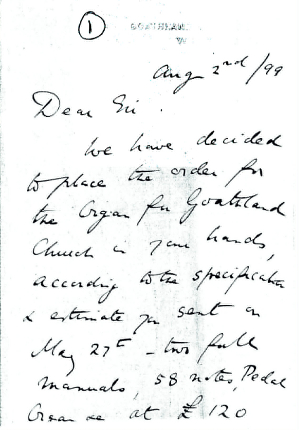 1
Aug 2nd/99
Dear Sir.
We have decided
to place the order for
the Organ for Goathland
Church in your hands,
according to the specification
& estimate you sent on
May 27th - two full
manuals, 58 notes, Pedal
Organ &c at £120